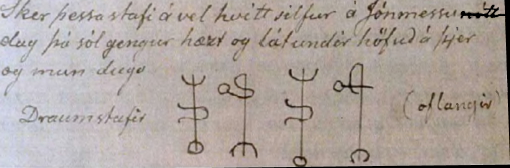 Sker þessa stafi á vel hvítt silfur á Jónmessunótt
dag þá sól gengur hæzt og lát undir höfuð á þjer
og mun duga
Draumstafir (oflangir)